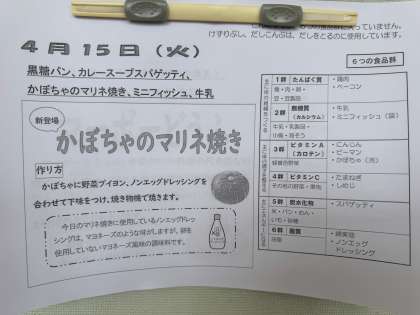 入っていません。
けずりぶし、だしこんぶは、だしをとるのに使用しています。
4月15日（火）
黒糖パン、カレースープスパゲッティ、
かぼちゃのマリネ焼き、ミニフィッシュ、牛乳
新登場
かぼちゃのマリネ焼き
作り方
かぼちゃに野菜ブイヨン、ノンエッグドレッシングを
合わせて下味をつけ、焼き物機で焼きます。
今日のマリネ焼きに使用しているノンエッグドレッ
シングは、マヨネーズのような味がしますが、卵を
使用していないマヨネーズ風味の調味料です。
6つの食品群
1群 たんぱく質
魚・肉・卵・
豆・豆製品
・鶏肉
・ベーコン
2群 無機質
（カルシウム）
牛乳・乳製品・
小魚・海そう
・牛乳
・ミニフィッシュ（袋）
3群 ビタミンA
（カロテン）
緑黄色野菜
・にんじん
・ピーマン
・かぼちゃ（冷）
4群 ビタミンC
その他の野菜・果物
・たまねぎ
・しめじ
5群 炭水化物
米・パン・めん・
いも・砂糖
・スパゲッティ
6群 脂質
油脂
・綿実油
・ノンエッグ
ドレッシング